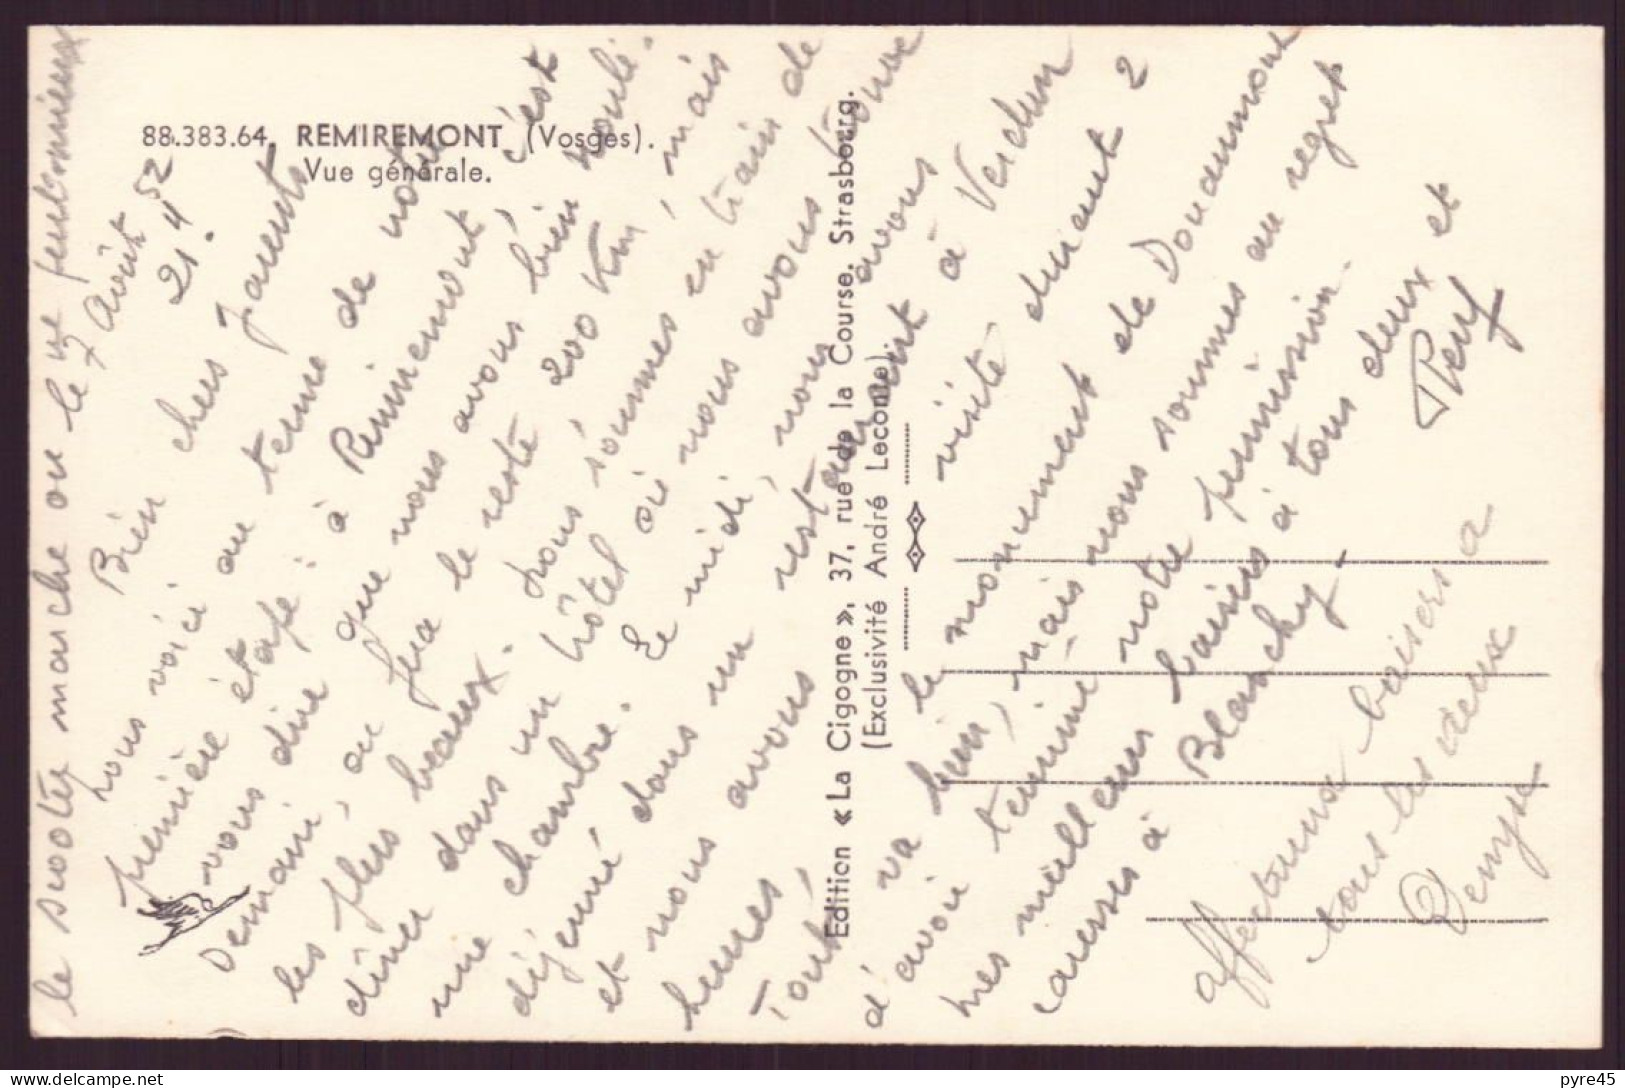 88.383.64. REMIREMONT (Vosges).
Vue générale.
7 Août 52
21. H
Bien chers Parents
nous voici au terme de notre
première étape à Remiremont, c'est
vous dire que nous avons bien roulé.
Demain, on fera le reste 200 Km, mais
les plus beaux. nous sommes en train de
dîner dans un hôtel où nous avons trouvé
une chambre. Ce midi, nous avons
déjeuné dans un restaurant à Verdun
et nous avons visité durant 2
heures, le monument de Douaumont
Tout va bien, mais nous sommes au regret
d'avoir terminé notre permission.
mes meilleurs baisers à tous deux et
caresses à Blanchy.
Affectueux baisers à
tous les deux
Denyse
le scooter marche on le
Edition « La Cigogne », 37, rue de la Course, Strasbourg.
(Exclusivité André Leconte)
pyre45